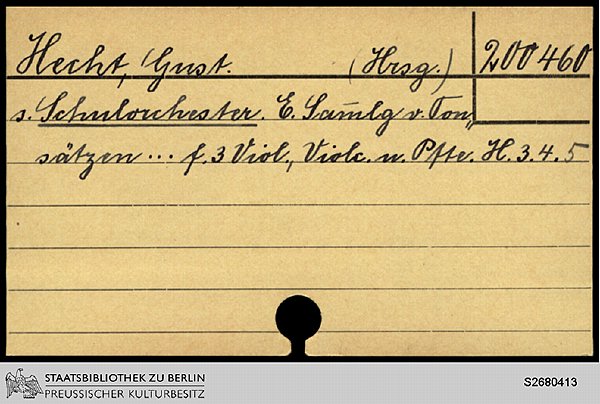 Hecht, Gust. (Hrsg.) 200460
s. Schulorchester. E. Sam̅lg v. Ton-
sätzen ... f. 3 Viol., Violc. u. Pfte. H. 3. 4. 5
STAATSBIBLIOTHEK ZU BERLIN
PREUSSISCHER KULTURBESITZ
S2680413